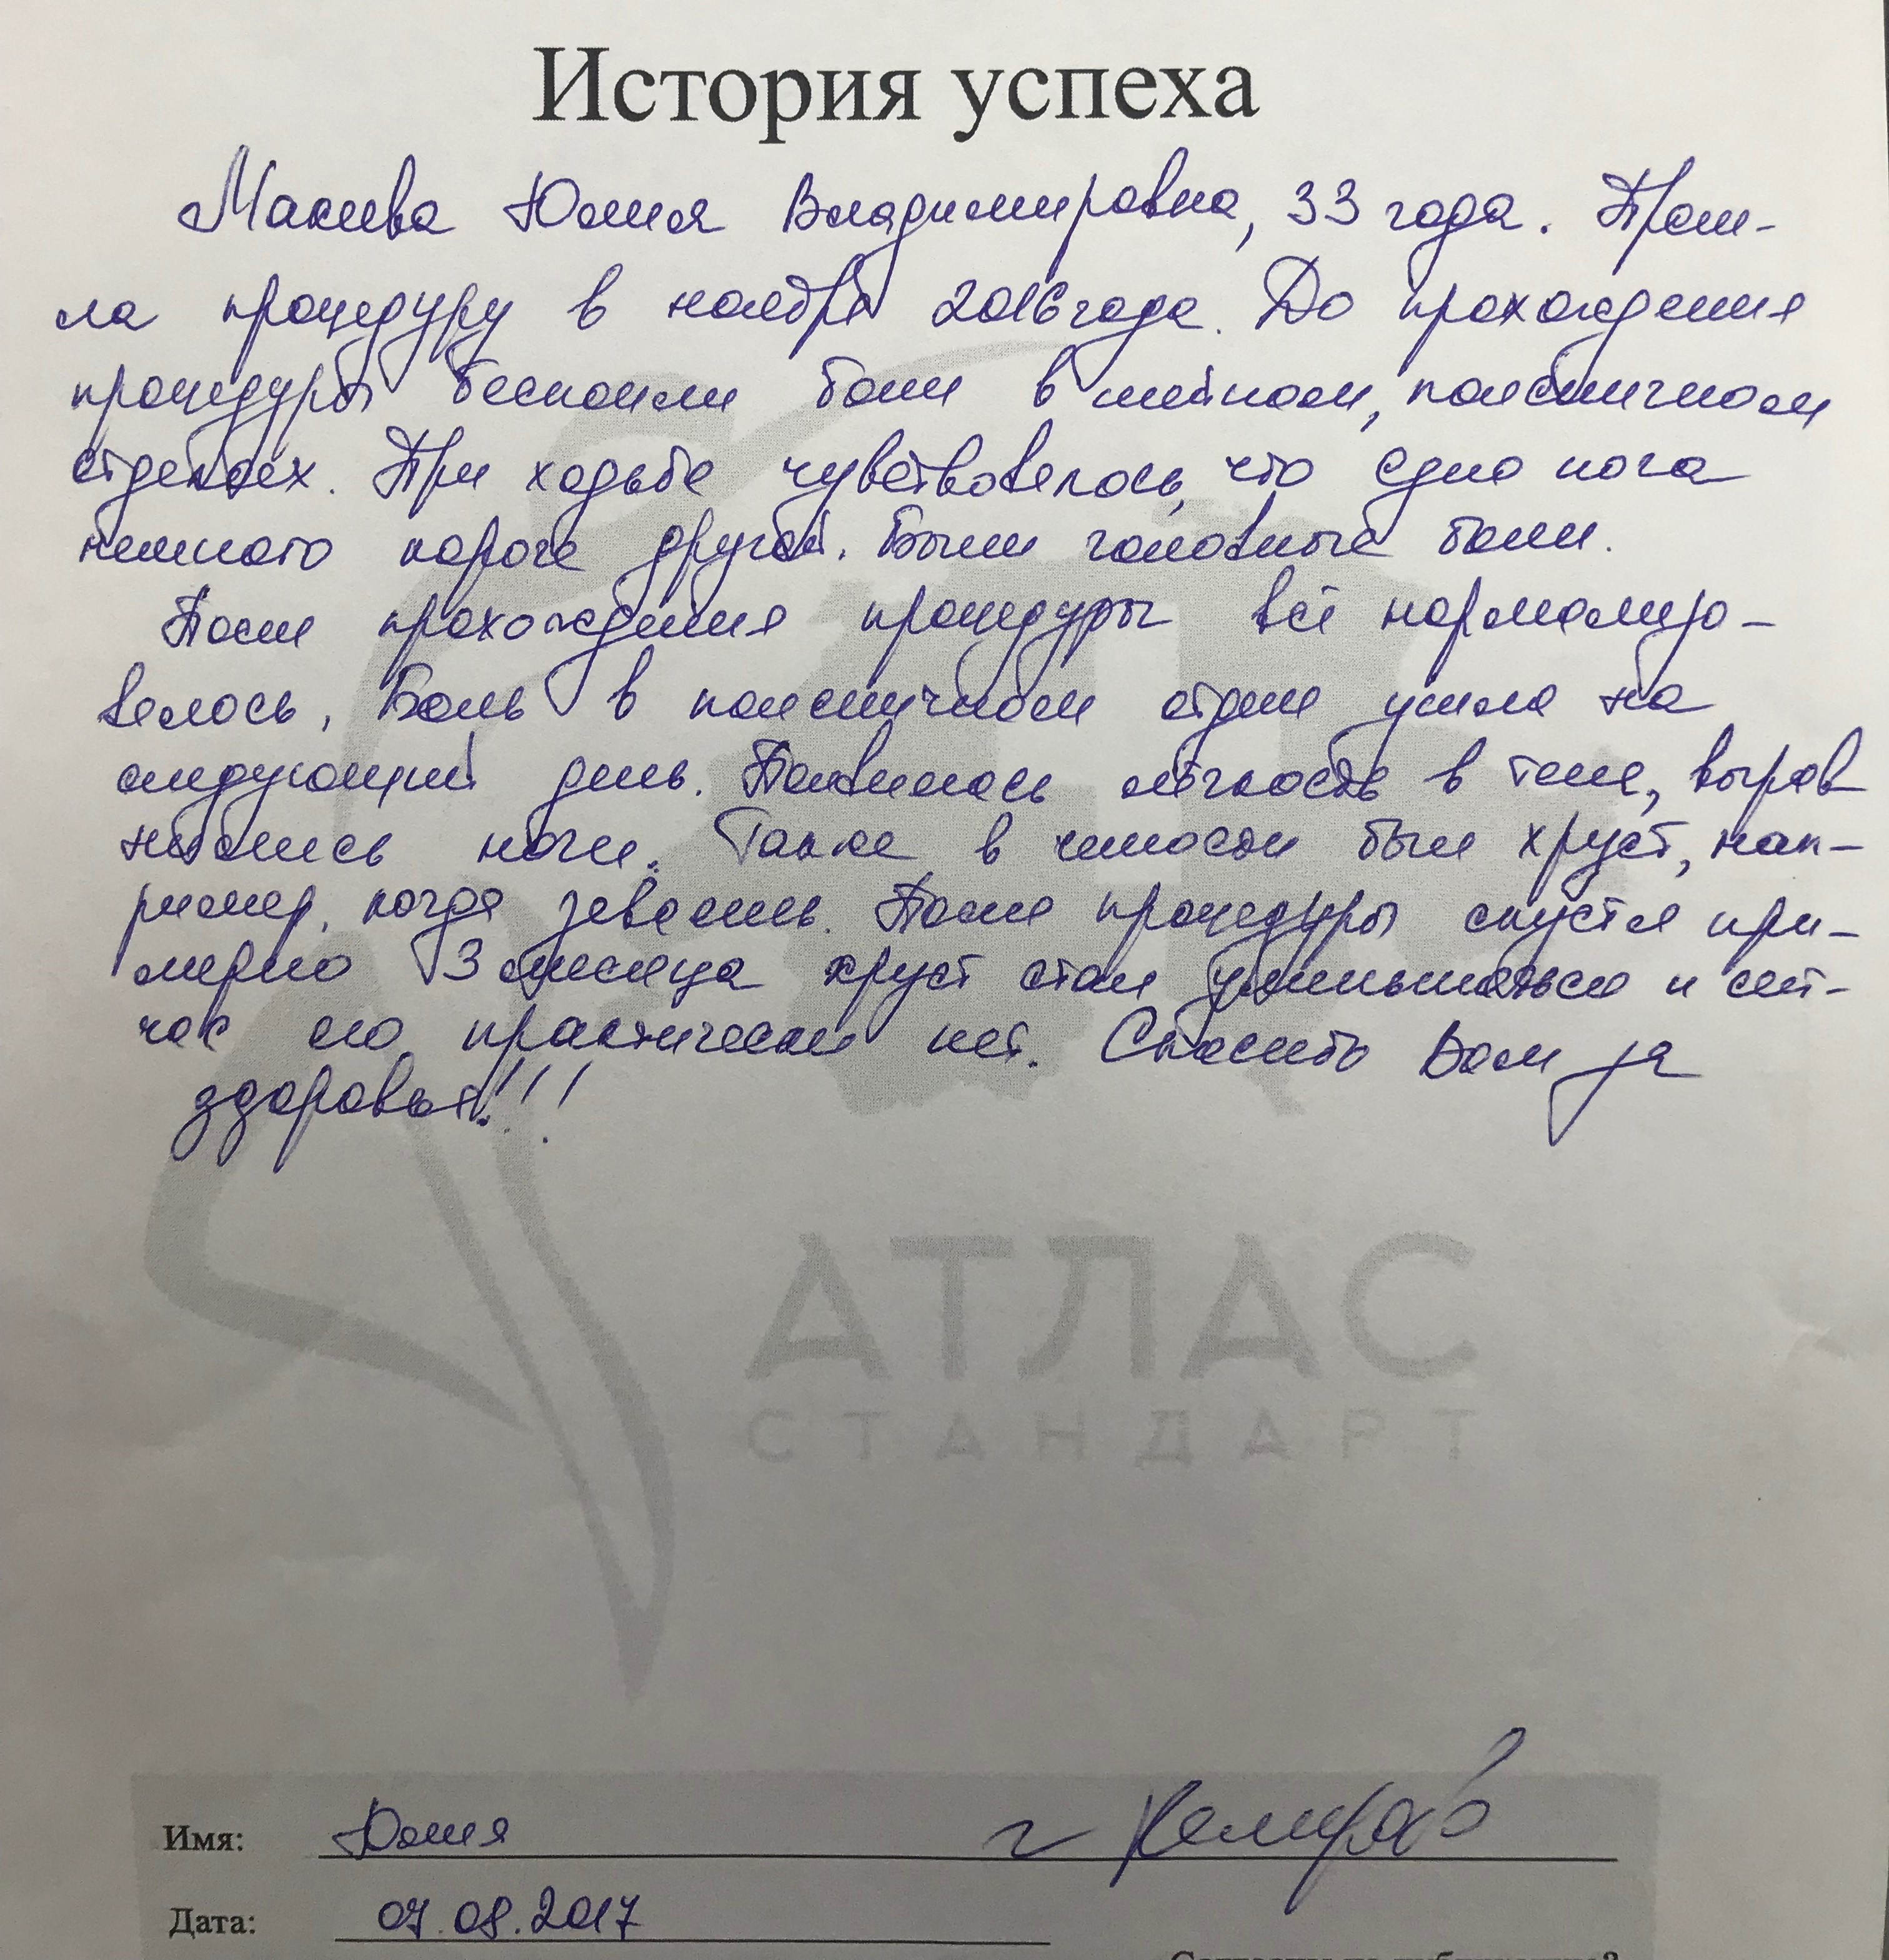 История успеха
Макиева Юлия Владимировна, 33 года. Прош-
ла процедуру в ноябре 2016 года. До прохождения
процедуры беспокоили боли в шейном, поясничном
отделах. При ходьбе чувствовалось, что одна нога
немного короче другой. Были головные боли.
После прохождения процедуры всё нормализо-
валось, Боль в поясничном отделе ушла на
следующий день. Появилась лёгкость в теле, выров
нялись ноги. Также в челюсти был хруст, нап-
ример, когда зеваешь. После процедуры спустя при-
мерно 3 месяца хруст стал уменьшаться и сей-
час его практически нет. Спасибо Вам за
здоровье!!!
АТЛАС
СТАНДАРТ
Имя: Юлия г Кемерово
Дата: 07.08.2017